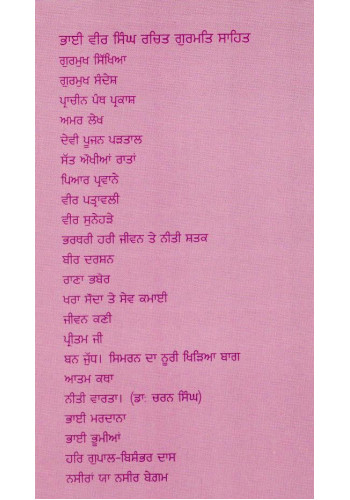 ਭਾਈ ਵੀਰ ਸਿੰਘ ਰਚਿਤ ਗੁਰਮਤਿ ਸਾਹਿਤ
ਗੁਰਮੁਖ ਸਿੱਖਿਆ
ਗੁਰਮੁਖ ਸੰਦੇਸ਼
ਪ੍ਰਾਚੀਨ ਪੰਥ ਪ੍ਰਕਾਸ਼
ਅਮਰ ਲੇਖ
ਦੇਵੀ ਪੂਜਨ ਪੜਤਾਲ
ਸੱਤ ਔਖੀਆਂ ਰਾਤਾਂ
ਪਿਆਰ ਪ੍ਰਵਾਨੇ
ਵੀਰ ਪਤ੍ਰਾਵਲੀ
ਵੀਰ ਸੁਨੇਹੜੇ
ਭਰਥਰੀ ਹਰੀ ਜੀਵਨ ਤੇ ਨੀਤੀ ਸ਼ਤਕ
ਬੀਰ ਦਰਸ਼ਨ
ਰਾਣਾ ਭਬੋਰ
ਖਰਾ ਸੌਦਾ ਤੇ ਸੇਵ ਕਮਾਈ
ਜੀਵਨ ਕਣੀ
ਪ੍ਰੀਤਮ ਜੀ
ਬਨ ਜੁੱਧ। ਸਿਮਰਨ ਦਾ ਨੂਰੀ ਖਿੜਿਆ ਬਾਗ
ਆਤਮ ਕਥਾ
ਨੀਤੀ ਵਾਰਤਾ। (ਡਾ: ਚਰਨ ਸਿੰਘ)
ਭਾਈ ਮਰਦਾਨਾ
ਭਾਈ ਭੂਮੀਆਂ
ਹਰਿ ਗੁਪਾਲ-ਬਿਸ਼ੰਭਰ ਦਾਸ
ਨਸੀਰਾਂ ਯਾ ਨਸੀਰ ਬੇਗ਼ਮ